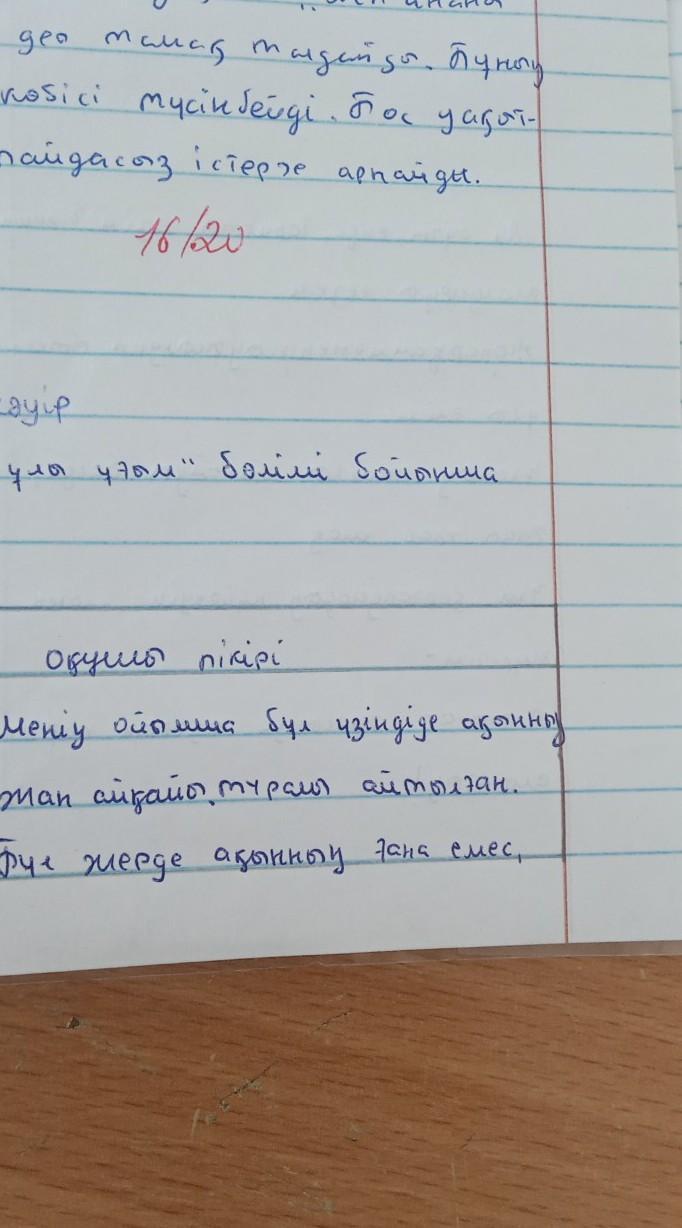 деп тамақ таңдайды. Бұның
көбісі түсінбейді. Бос уақыт-
пайдасыз істерге арнайды.
16/20
әуір
ұлы ұғым" бөлімі бойынша
оқушы пікірі
Менің ойымша бұл үзіндіде ақынның
жан айқайы туралы айтылған.
Бұл жерде ақынның ғана емес,